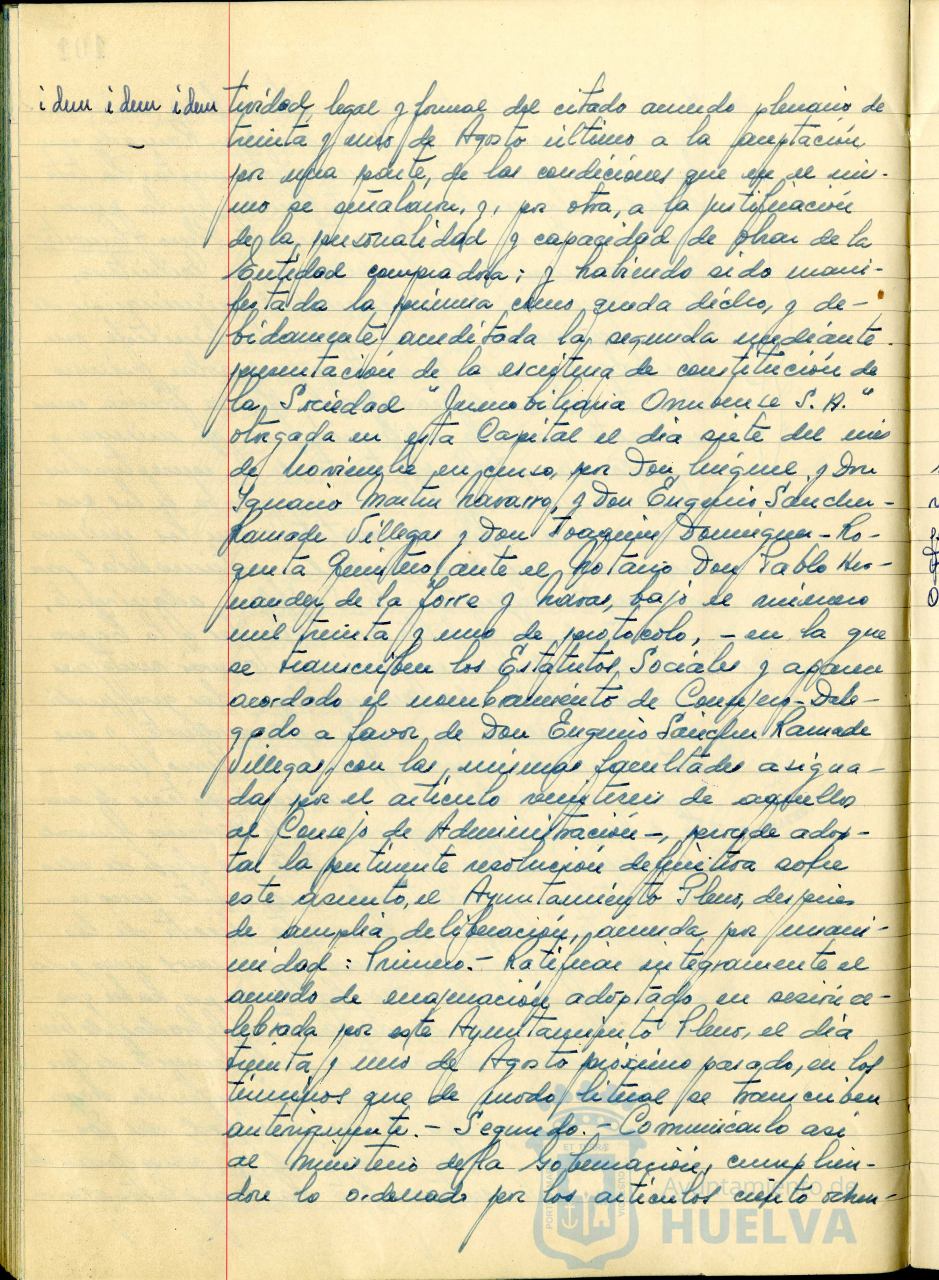 idem idem idem
tividad, legal y formal del citado acuerdo plenario de
treinta y uno de Agosto último a la aceptación
por una parte, de las condiciones que en el mis-
mo se señalaron, y, por otra, a la justificación
de la personalidad y capacidad de obrar de la
Entidad compradora; y habiendo sido mani-
festada la primera como queda dicho, y de-
bidamente acreditada la segunda mediante
presentación de la escritura de constitución de
la Sociedad "Inmobiliaria Onubense S.A."
otorgada en esta Capital el día siete del mes
de Noviembre en curso, por Don Miguel y Don
Ignacio Martin Navarro, y Don Eugenio Sánchez-
Ramade Villegas y Don Joaquin Dominguez-Ro-
queta Quintero ante el Notario Don Pablo Her-
nandez de la Torre y Navas, bajo el número
mil treinta y uno de protocolo, - en la que
se transcriben los Estatutos Sociales y aparece
acordado el nombramiento de Consejero-Dele-
gado a favor de Don Eugenio Sánchez Ramade
Villegas, con las mismas facultades asigna-
das por el artículo veintitres de aquellos
al Consejo de Administración -, procede adop-
tar la pertinente resolución definitiva sobre
este asunto, el Ayuntamiento Pleno, despues
de amplia deliberación, acuerda por unani-
midad: Primero.- Ratificar integramente el
acuerdo de enajenación adoptado en sesión ce-
lebrada por este Ayuntamiento Pleno, el día
treinta y uno de Agosto próximo pasado, en los
términos que de modo literal se transcriben
anteriormente. - Segundo. - Comunicarlo asi
al Ministerio de la Gobernación, cumplien-
dose lo ordenado por los artículos ciento ochen-
Ayuntamiento de
HUELVA